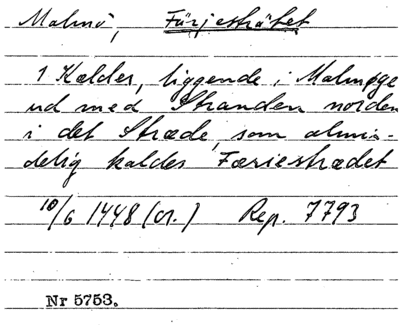 Malmö, Färjesträtet
1 Kælder, liggende i Malmøge
ud med Stranden norden
i det Stræde, som almin-
delig kaldes Færiestrædet
10/6 1448 (or.) Rep. 7793
Nr 5753.